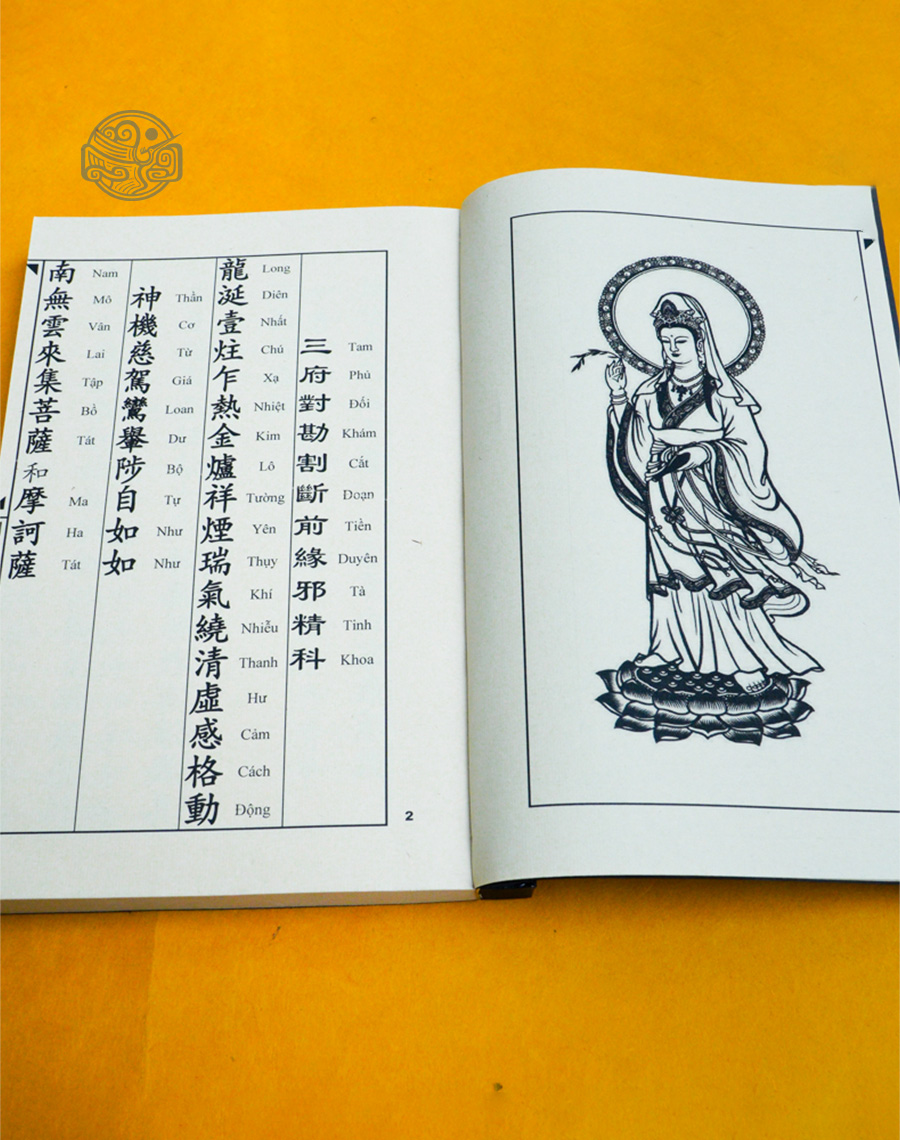 三府對勘割斷前緣邪精科
Tam Phủ Đối Khám Cắt Đoạn Tiền Duyên Tà Tinh Khoa
龍涎壹炷乍熱金爐祥煙瑞氣繞清虛感格動
Long Diên Nhất Chú Xạ Nhiệt Kim Lô Tường Yên Thụy Khí Nhiễu Thanh Hư Cảm Cách Động
神機慈駕鸞轝陟自如如
Thần Cơ Từ Giá Loan Dư Bộ Tự Như Như
南無雲來集菩薩和摩訶薩
Nam Mô Vân Lai Tập Bồ Tát Ma Ha Tát
2